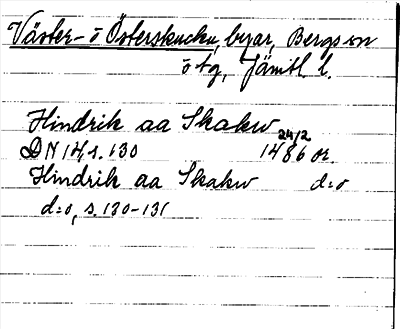 Väster- o Österskucku, byar, Bergs sn
o tg, Jämtl l.
Hindrik aa Skakw
DN 14, s. 130 24/2 1486 or.
Hindrik aa Skakw d:o
d:o, s. 130-131